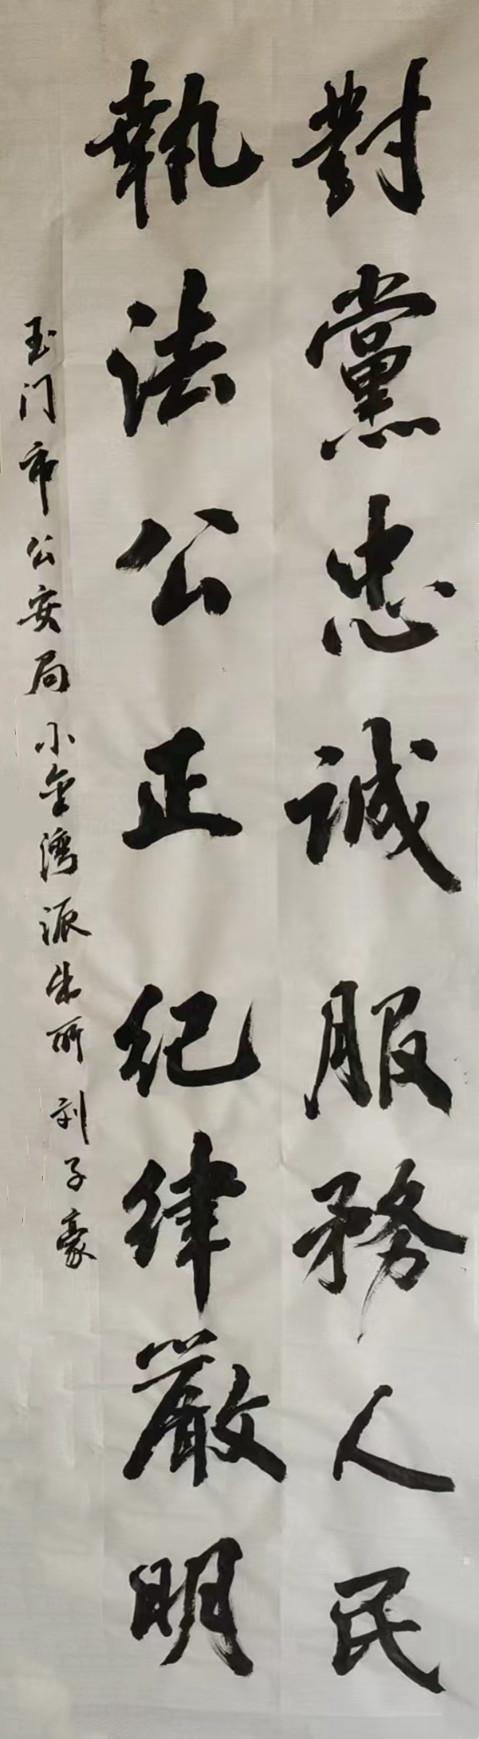 對黨忠誠服務人民
執法公正紀律嚴明
玉门市公安局小金湾派出所刘子豪